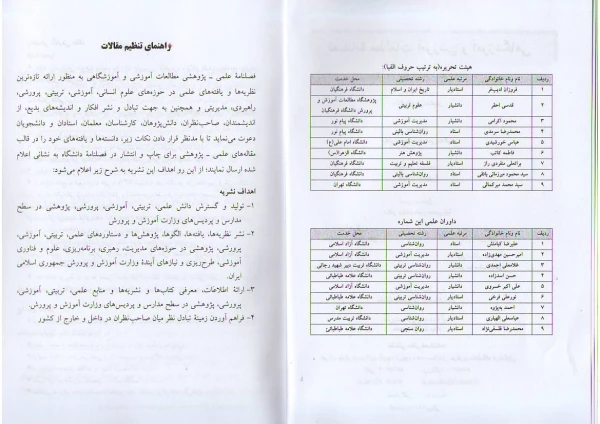 هیئت تحریره(به ترتیب حروف الفبا):
ردیف نام ونام خانوادگی مرتبه علمی رشته تحصیلی محل خدمت
۱ فروزان ادیب‌فر استادیار تاریخ ایران و اسلام دانشگاه فرهنگیان
۲ قدسی احقر دانشیار علوم تربیتی پژوهشگاه مطالعات آموزش و پرورش دانشگاه فرهنگیان
۳ محمود اکرامی دانشیار مدیریت آموزشی دانشگاه پیام نور
۴ محمدرضا سرمدی استاد روان‌شناسی بالینی دانشگاه پیام نور
۵ عباس خورشیدی استاد مدیریت آموزشی دانشگاه امام علی(ع)
۶ فاطمه کاتب دانشیار پژوهش هنر دانشگاه الزهرا(س)
۷ براتعلی منفردی راز استادیار فلسفه تعلیم و تربیت دانشگاه فرهنگیان
۸ سید محمود میرزمانی بافقی استاد روان‌شناسی بالینی دانشگاه فرهنگیان
۹ سید محمد میرکمالی استاد مدیریت آموزشی دانشگاه تهران
داوران علمی این شماره
ردیف نام ونام خانوادگی مرتبه علمی رشته تحصیلی محل خدمت
۱ علیرضا کیامنش استاد روان‌شناسی دانشگاه آزاد اسلامی
۲ امیرحسین مهدی‌زاده دانشیار مدیریت آموزشی دانشگاه آزاد اسلامی
۳ غلامعلی احمدی دانشیار روان‌شناسی تربیتی دانشگاه تربیت دبیر شهید رجائی
۴ حسن اسدزاده دانشیار روان‌شناسی تربیتی دانشگاه علامه طباطبائی
۵ علی اکبر خسروی دانشیار مدیریت آموزشی دانشگاه آزاد اسلامی
۶ نورعلی فرخی دانشیار روان‌شناسی تربیتی دانشگاه علامه طباطبائی
۷ احمد به‌پژوه دانشیار روان‌شناسی دانشگاه تهران
۸ عباسعلی الهیاری استادیار روان‌شناسی دانشگاه تربیت مدرس
۹ محمدرضا فلسفی‌نژاد استادیار روان سنجی دانشگاه علامه طباطبائی
راهنمای تنظیم مقالات
فصلنامهٔ علمی ـ پژوهشی مطالعات آموزشی و آموزشگاهی به منظور ارائه تازه‌ترین
نظریه‌ها و یافته‌های علمی در حوزه‌های علوم انسانی، آموزشی، تربیتی، پرورشی،
راهبردی، مدیریتی و همچنین به جهت تبادل و نشر افکار و اندیشه‌های بدیع، از
اندیشمندان، صاحب‌نظران، دانش‌پژوهان، کارشناسان، معلمان، استادان و دانشجویان
دعوت می‌نماید تا با مدنظر قرار دادن نکات زیر، دانسته‌ها و یافته‌های خود را در قالب
مقاله‌های علمی ـ پژوهشی برای چاپ و انتشار در فصلنامهٔ دانشگاه به نشانی اعلام
شده ارسال نمایند؛ از این رو اهداف این نشریه به شرح زیر اعلام می‌شود:
اهداف نشریه
۱- تولید و گسترش دانش علمی، تربیتی، آموزشی، پرورشی، پژوهشی در سطح
مدارس و پردیس‌های وزارت آموزش و پرورش
۲- نشر نظریه‌ها، یافته‌ها، الگوها، پژوهش‌ها و دستاوردهای علمی، تربیتی، آموزشی،
پرورشی، پژوهشی در حوزه‌های مدیریت، رهبری، برنامه‌ریزی، علوم و فناوری
آموزشی، طرح‌ریزی و نیازهای آیندهٔ وزارت آموزش و پرورش جمهوری اسلامی
ایران.
۳- ارائهٔ اطلاعات، معرفی کتاب‌ها و نشریه‌ها و منابع علمی، تربیتی، آموزشی،
پرورشی، پژوهشی در سطح مدارس و پردیس‌های وزارت آموزش و پرورش.
۴- فراهم آوردن زمینهٔ تبادل نظر میان صاحب‌نظران در داخل و خارج از کشور